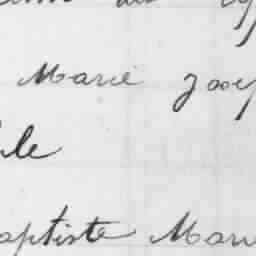 Marie Josep
le
aptiste Mari